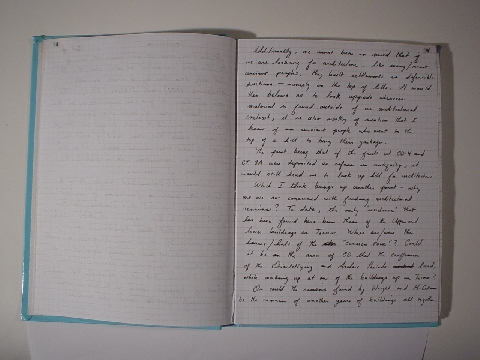 Additionally, we must bear in mind that if
we are looking for architecture - like many/most
ancient peoples, they built settlements in defensible
positions - namely on the top of hills. It would
then behoove us to look upgrade whenever
material is found outside of an architectural
context, it is also worthy of mention that I
know of no ancient people who went to the
top of a hill to bury their garbage.
The point being that if the finds at CD 4 and
CT 9A were deposited as refuse in antiquity, it
would still lead us to look up hill for architecture
Which I think brings up another point - why
are we so concerned with finding architectural
remains? To date, the only "evidence" that
has been found have been those of the upper and
lower buildings on Tesoro. Where are/were the
homes/huts of the "common Poran"? Could
it be on the area of CD that the craftsmen
of the Orientalizing and Archaic Periods lived,
while working up at one of the buildings up on Tesoro?
Or could the remains found by Wright and
be the remains of another year of buildings all together